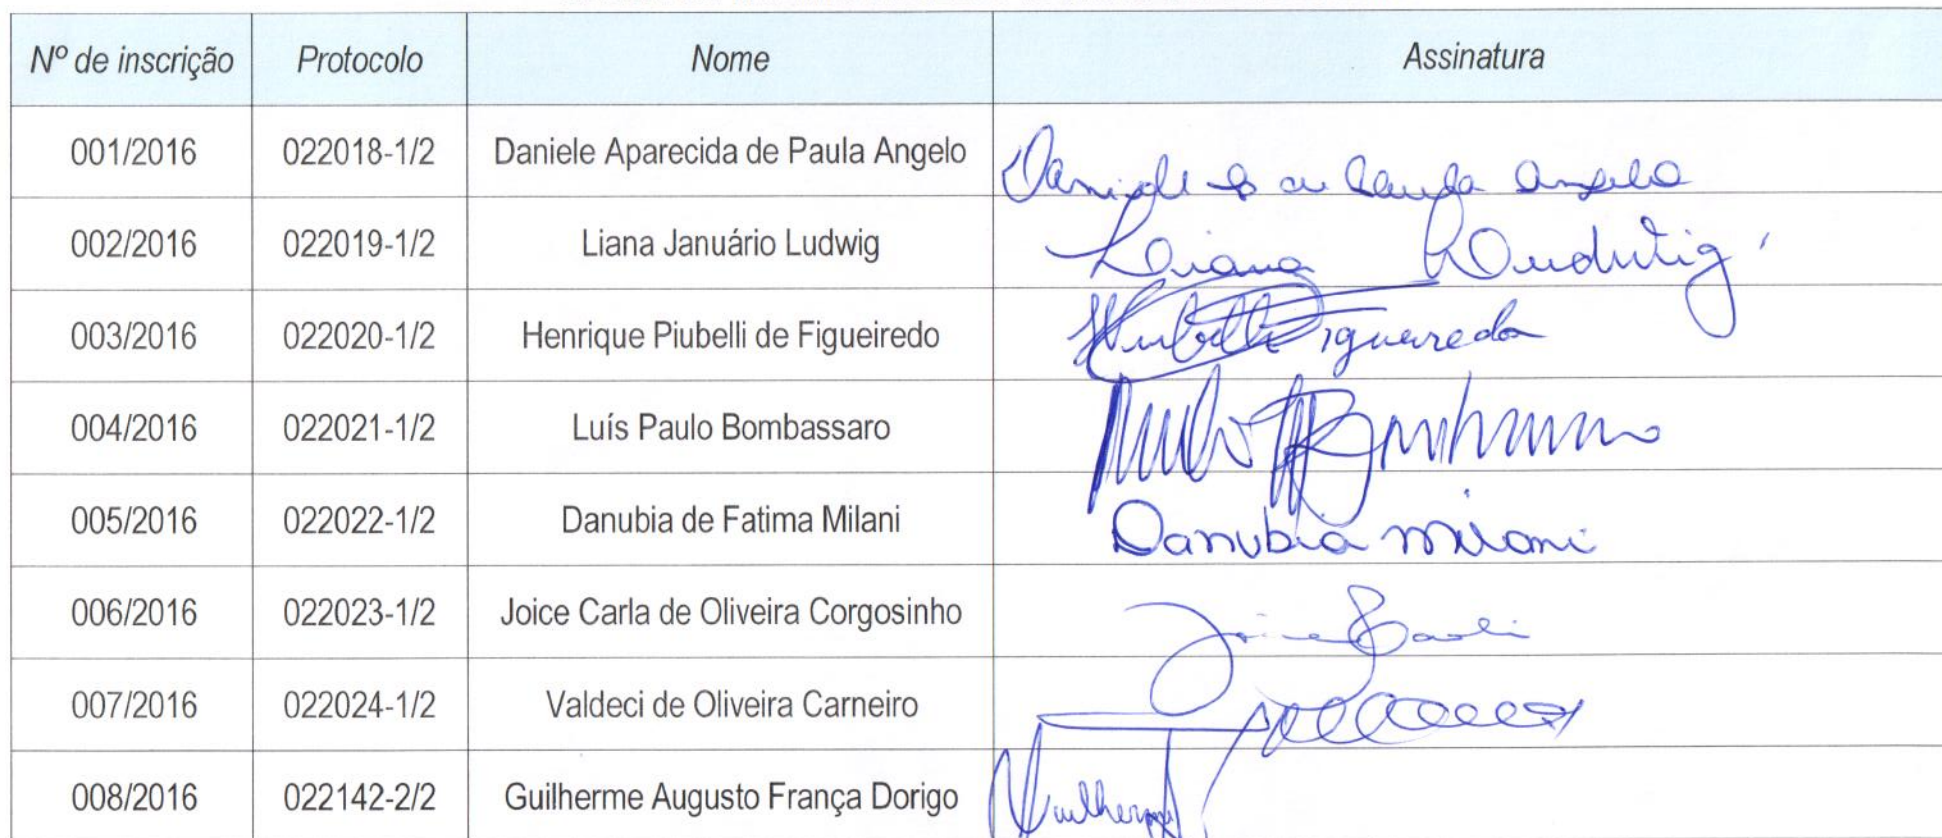 Nº de inscrição Protocolo Nome Assinatura
001/2016 022018-1/2 Daniele Aparecida de Paula Angelo Daniele de Paula Angelo
002/2016 022019-1/2 Liana Januário Ludwig Liana Ludwig
003/2016 022020-1/2 Henrique Piubelli de Figueiredo Figueiredo
004/2016 022021-1/2 Luís Paulo Bombassaro
005/2016 022022-1/2 Danubia de Fatima Milani Danubia Milani
006/2016 022023-1/2 Joice Carla de Oliveira Corgosinho Joice
007/2016 022024-1/2 Valdeci de Oliveira Carneiro
008/2016 022142-2/2 Guilherme Augusto França Dorigo Guilherme